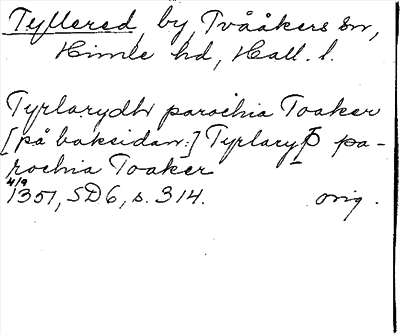 Tyllered, by, Tvååkers sn,
Himle hd, Hall. l.
Tyrlarydhr parochia Toaker
[på baksidan:] Tyrlaryþ pa-
rochia Toaker
4/9 1351, SD 6, s. 314. orig.